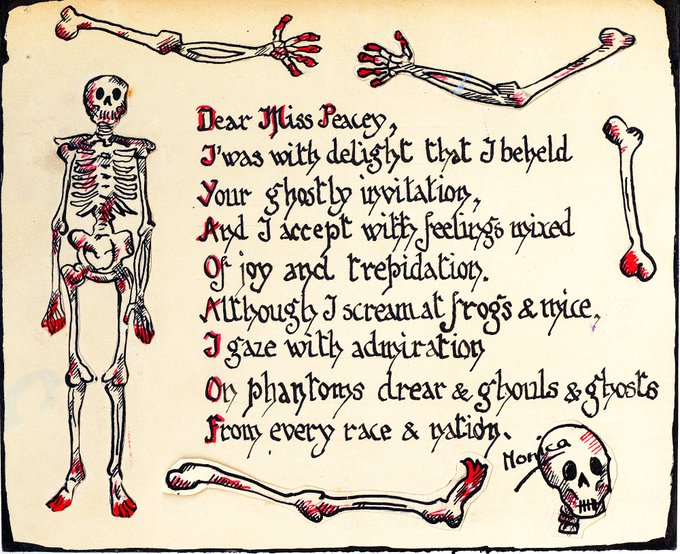 Dear Miss Peacey,
I was with delight that I beheld
Your ghostly invitation,
And I accept with feelings mixed
Of joy and trepidation.
Although I scream at frogs & mice,
I gaze with admiration
On phantoms drear & ghouls & ghosts
From every race & nation.
Monica